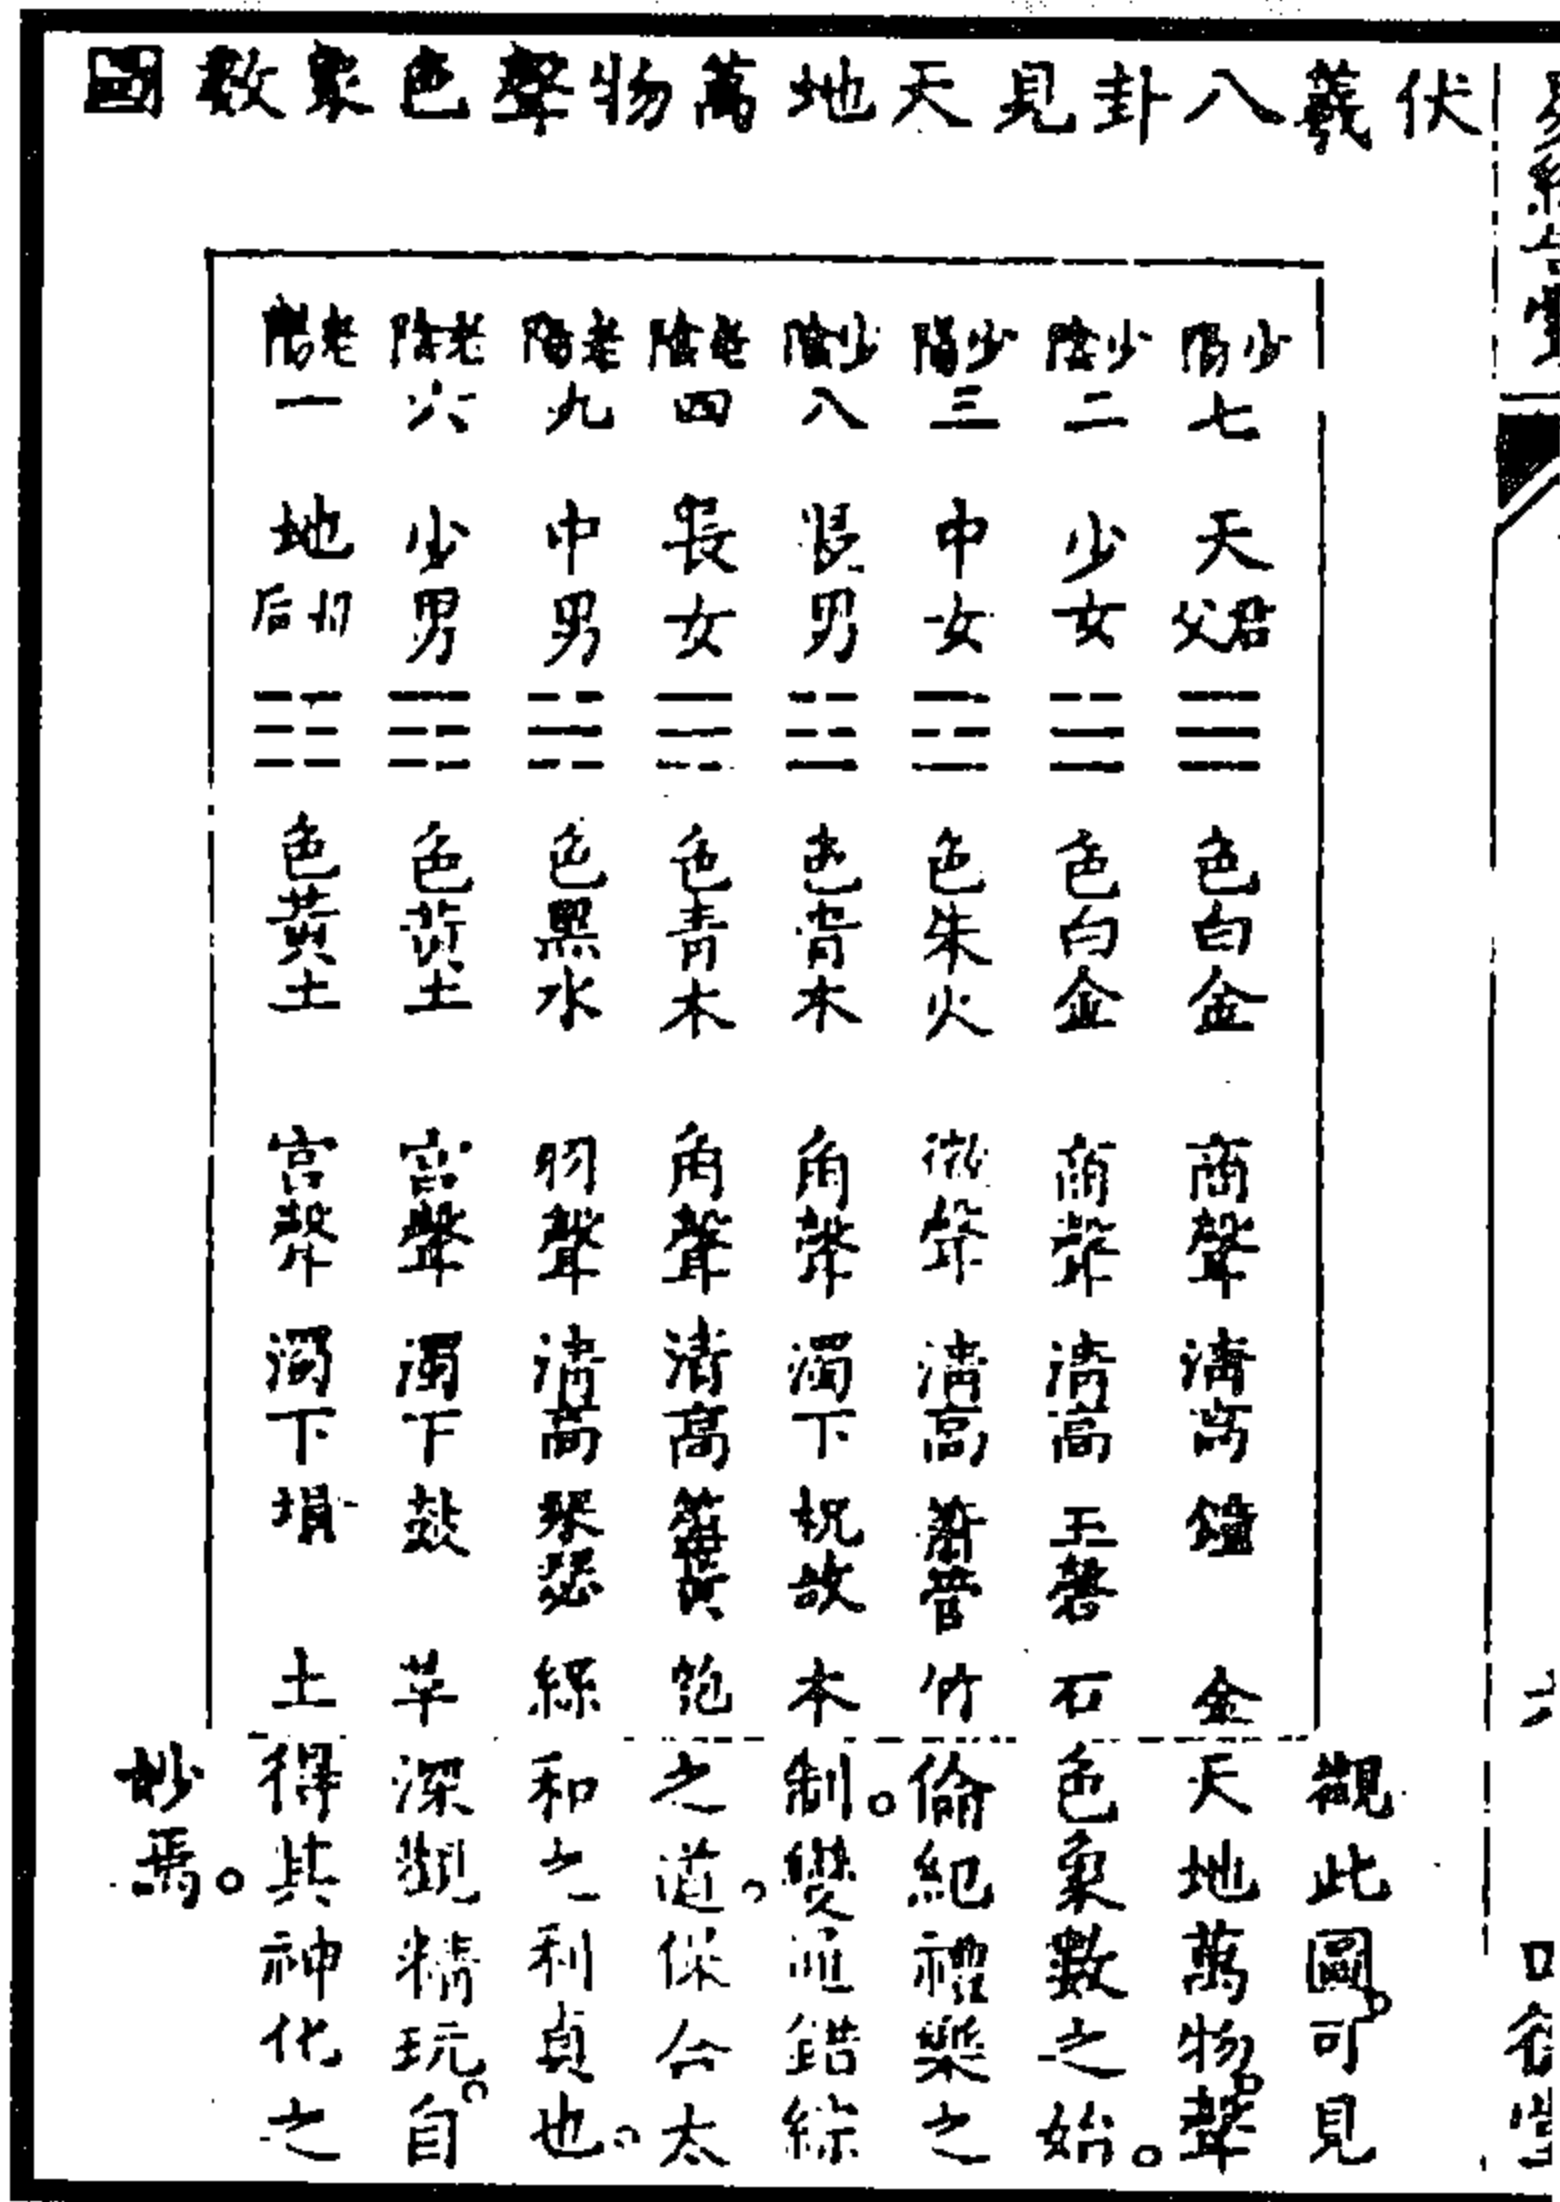 伏羲八卦見天地萬物聲色象數圖
少陽七 天君父 ☰ 色白金 商聲 清高 鐘 金
少陰二 少女 ☱ 色白金 商聲 清高 玉磬 石
少陽三 中女 ☲ 色朱火 徵聲 清高 蕭管 竹
少陰八 長男 ☳ 色青木 角聲 濁下 柷敔 木
老陰四 長女 ☴ 色青木 角聲 清高 匏
老陽九 中男 ☵ 色黑水 羽聲 清高 琴瑟 絲
老陰六 少男 ☶ 色黃土 宮聲 濁下 鼓 革
老陽一 地后 ☷ 色黃土 宮聲 濁下 塤 土
觀此圖。可見
天地萬物。聲
色象數之始。
倫紀禮樂之
制。變通錯綜
之道。保合太
和之利貞也。
深觀精玩。自
得其神化之
妙焉。